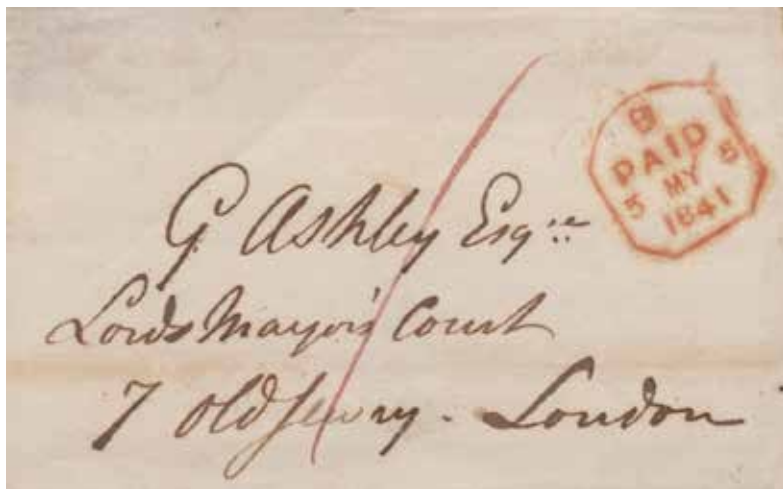 B
PAID
5 MY 5
1841
G Ashley Esqre
Lords Mayor's Court
7 Old Jewry - London